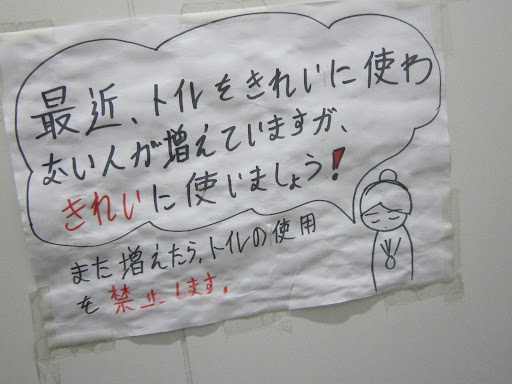 最近、トイレをきれいに使わ
ない人が増えていますが、
きれいに使いましょう!
また増えたら、トイレの使用
を禁止します。